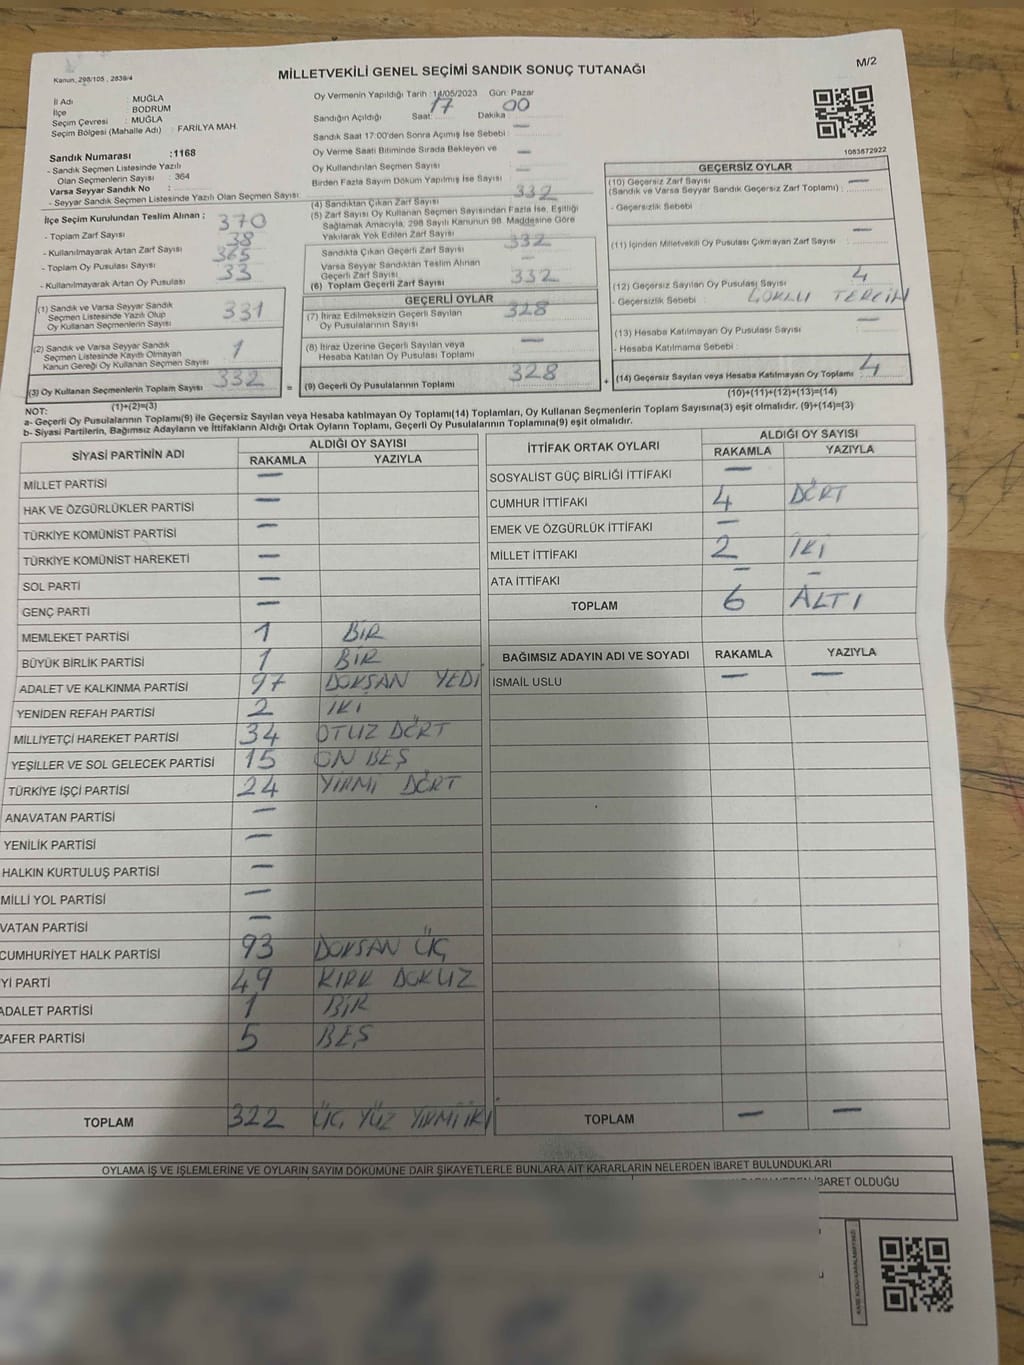 Kanun, 298/105 , 2839/4
MİLLETVEKİLİ GENEL SEÇİMİ SANDIK SONUÇ TUTANAĞI
M/2
İl Adı : MUĞLA
İlçe : BODRUM
Seçim Çevresi : MUĞLA
Seçim Bölgesi (Mahalle Adı) : FARİLYA MAH.
Sandık Numarası :1168
- Sandık Seçmen Listesinde Yazılı
Olan Seçmenlerin Sayısı : 364
Varsa Seyyar Sandık No :
- Seyyar Sandık Seçmen Listesinde Yazılı Olan Seçmen Sayısı :
İlçe Seçim Kurulundan Teslim Alınan ;
- Toplam Zarf Sayısı 370
- Kullanılmayarak Artan Zarf Sayısı 38
- Toplam Oy Pusulası Sayısı 365
- Kullanılmayarak Artan Oy Pusulası 33
(1) Sandık ve Varsa Seyyar Sandık
Seçmen Listesinde Yazılı Olup
Oy Kullanan Seçmenlerin Sayısı 331
(2) Sandık ve Varsa Seyyar Sandık
Seçmen Listesinde Kayıtlı Olmayan
Kanun Gereği Oy Kullanan Seçmen Sayısı 1
(3) Oy Kullanan Seçmenlerin Toplam Sayısı 332
(1)+(2)=(3)
Oy Vermenin Yapıldığı Tarih : 14/05/2023 Gün: Pazar
Sandığın Açıldığı Saat: 17 Dakika 00
Sandık Saat 17:00'den Sonra Açımış İse Sebebi : —
Oy Verme Saati Bitiminde Sırada Bekleyen ve
Oy Kullandırılan Seçmen Sayısı —
Birden Fazla Sayım Döküm Yapılmış İse Sayısı —
(4) Sandıktan Çıkan Zarf Sayısı 332
(5) Zarf Sayısı Oy Kullanan Seçmen Sayısından Fazla İse, Eşitliği
Sağlamak Amacıyla, 298 Sayılı Kanunun 98. Maddesine Göre
Yakılarak Yok Edilen Zarf Sayısı —
Sandıkta Çıkan Geçerli Zarf Sayısı 332
Varsa Seyyar Sandıktan Teslim Alınan
Geçerli Zarf Sayısı —
(6) Toplam Geçerli Zarf Sayısı 332
GEÇERLİ OYLAR
(7) İtiraz Edilmeksizin Geçerli Sayılan
Oy Pusulalarının Sayısı 328
(8) İtiraz Üzerine Geçerli Sayılan veya
Hesaba Katılan Oy Pusulası Toplamı —
= (9) Geçerli Oy Pusulalarının Toplamı 328
1083872922
GEÇERSİZ OYLAR
(10) Geçersiz Zarf Sayısı
(Sandık ve Varsa Seyyar Sandık Geçersiz Zarf Toplamı) : —
- Geçersizlik Sebebi :
(11) İçinden Milletvekili Oy Pusulası Çıkmayan Zarf Sayısı —
(12) Geçersiz Sayılan Oy Pusulası Sayısı 4
- Geçersizlik Sebebi : ÇOKLU TERCİH
(13) Hesaba Katılmayan Oy Pusulası Sayısı —
- Hesaba Katılmama Sebebi :
+ (14) Geçersiz Sayılan veya Hesaba Katılmayan Oy Toplamı 4
(10)+(11)+(12)+(13)=(14)
NOT:
a- Geçerli Oy Pusulalarının Toplamı(9) ile Geçersiz Sayılan veya Hesaba katılmayan Oy Toplamı(14) Toplamları, Oy Kullanan Seçmenlerin Toplam Sayısına(3) eşit olmalıdır. (9)+(14)=(3)
b- Siyasi Partilerin, Bağımsız Adayların ve İttifakların Aldığı Ortak Oyların Toplamı, Geçerli Oy Pusulalarının Toplamına(9) eşit olmalıdır.
SİYASİ PARTİNİN ADI ALDIĞI OY SAYISI
RAKAMLA YAZIYLA
MİLLET PARTİSİ —
HAK VE ÖZGÜRLÜKLER PARTİSİ —
TÜRKİYE KOMÜNİST PARTİSİ —
TÜRKİYE KOMÜNİST HAREKETİ —
SOL PARTİ —
GENÇ PARTİ —
MEMLEKET PARTİSİ 1 BİR
BÜYÜK BİRLİK PARTİSİ 1 BİR
ADALET VE KALKINMA PARTİSİ 97 DOKSAN YEDİ
YENİDEN REFAH PARTİSİ 2 İKİ
MİLLİYETÇİ HAREKET PARTİSİ 34 OTUZ DÖRT
YEŞİLLER VE SOL GELECEK PARTİSİ 15 ON BEŞ
TÜRKİYE İŞÇİ PARTİSİ 24 YİRMİ DÖRT
ANAVATAN PARTİSİ —
YENİLİK PARTİSİ —
HALKIN KURTULUŞ PARTİSİ —
MİLLİ YOL PARTİSİ —
VATAN PARTİSİ —
CUMHURİYET HALK PARTİSİ 93 DOKSAN ÜÇ
Yİ PARTİ 49 KIRK DOKUZ
ADALET PARTİSİ 1 BİR
ZAFER PARTİSİ 5 BEŞ
TOPLAM 322 ÜÇ YÜZ YİRMİ İKİ
İTTİFAK ORTAK OYLARI ALDIĞI OY SAYISI
RAKAMLA YAZIYLA
SOSYALİST GÜÇ BİRLİĞİ İTTİFAKI —
CUMHUR İTTİFAKI 4 DÖRT
EMEK VE ÖZGÜRLÜK İTTİFAKI —
MİLLET İTTİFAKI 2 İKİ
ATA İTTİFAKI — —
TOPLAM 6 ALTI
BAĞIMSIZ ADAYIN ADI VE SOYADI RAKAMLA YAZIYLA
İSMAİL USLU — —
TOPLAM — —
OYLAMA İŞ VE İŞLEMLERİNE VE OYLARIN SAYIM DÖKÜMÜNE DAİR ŞİKAYETLERLE BUNLARA AİT KARARLARIN NELERDEN İBARET BULUNDUKLARI
İBARET OLDUĞU